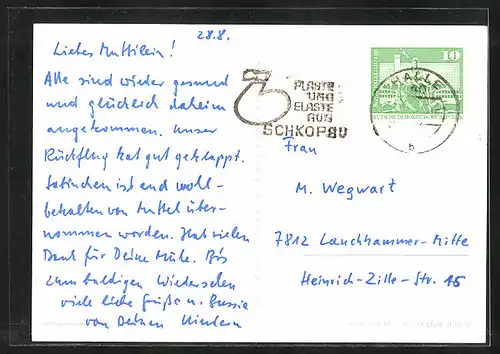 28.8.
Liebes Muttilein!
Alle sind wieder gesund
und glücklich daheim
angekommen. Unser
Rückflug hat gut geklappt.
ist auch wohl-
behalten von über-
nommen worden. Hab vielen
Dank für Deine Mühe. Bis
zum baldigen Wiedersehen
viele liebe Grüße u. Bussis
von Deinen Kindern
PLASTE
UND
ELASTE
AUS
SCHKOPAU
10
HALLE
DEUTSCHE DEMOKRATISCHE REPUBLIK
b
Frau
M. Wegwart
7812 Lauchhammer-Mitte
Heinrich-Zille-Str. 15